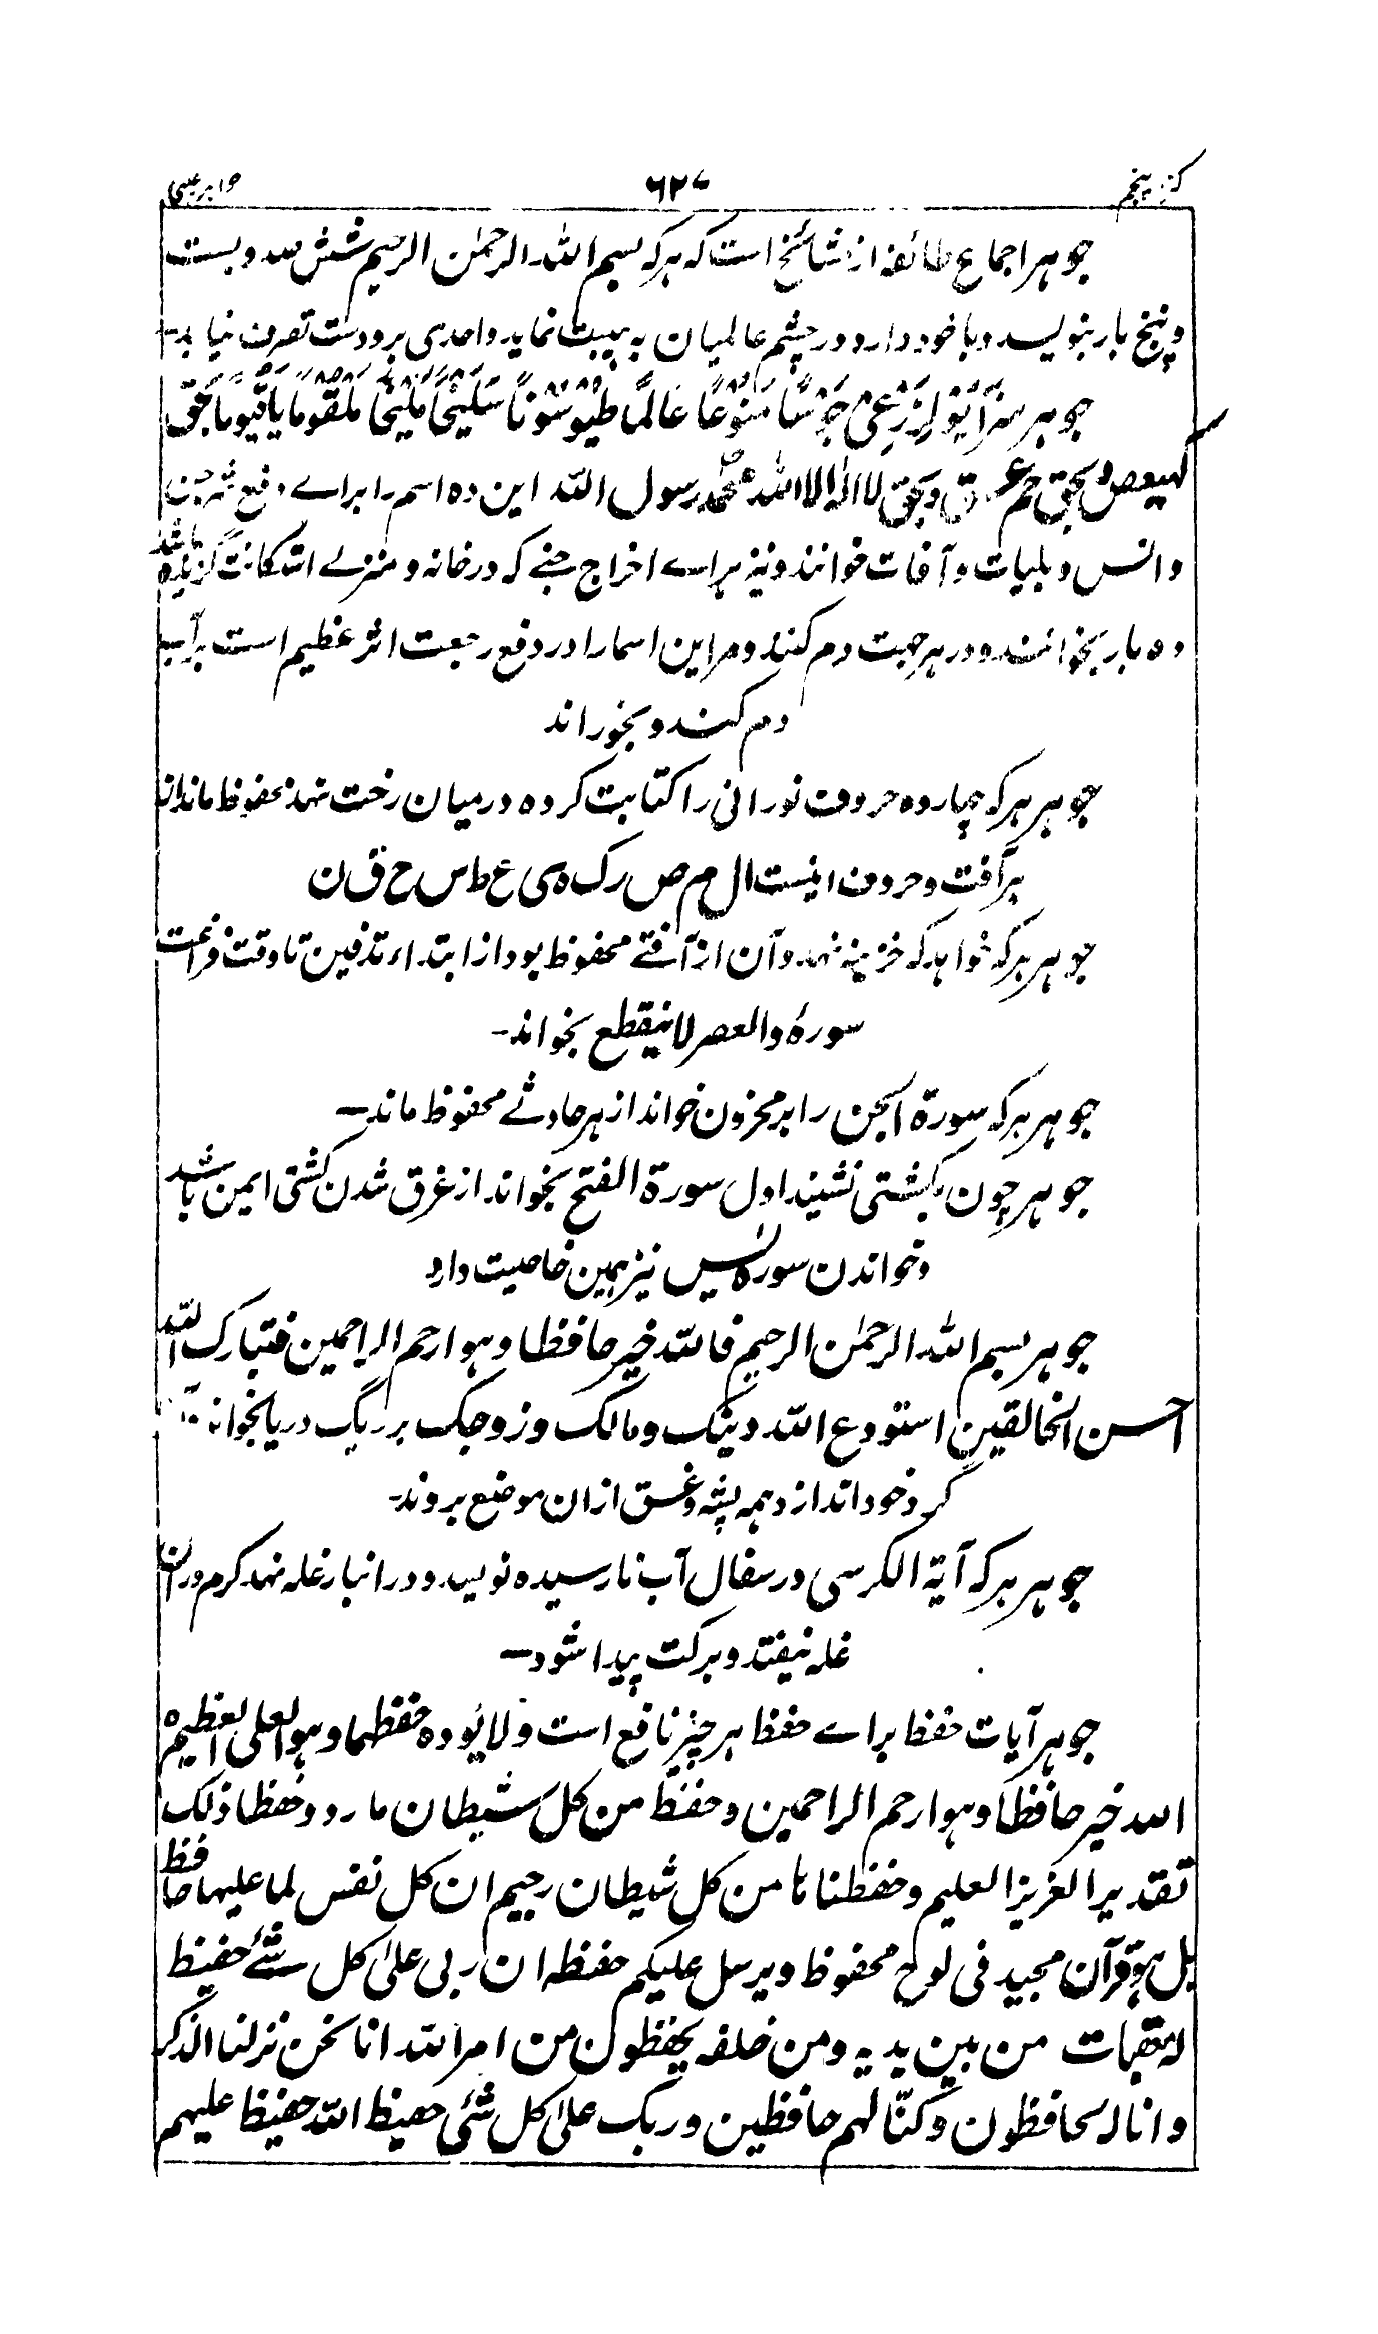 کنز پنجم ۶۲۷ جواہر غیبی
جوہر اجماع طائفہ از مشائخ است کہ ہر کہ بسم اللہ الرحمٰن الرحیم شش صد و بست
و پنج بار بنویسد و با خود دارد در چشم عالمیان بہ ہیبت نماید و احدی برو دست تصرف نیابد۔
جوہر عَالِمًا مَلِیْخًا
کہیعص و بحق حم عسق و بحق لا الہ الا اللہ محمد رسول اللہ این دہ اسم را براے دفع شر جن
و انس و بلیات و آفات خوانند و نیز براے اخراج جنے کہ در خانہ و منزلے استکانت گزیدہ باشد
دہ بار بخوانند و در ہر جہت دم کنند و مر این اسما را در دفع رجعت اثر عظیم است بر آب
دم کنند و بخوراند
جوہر ہر کہ چہاردہ حروف نورانی را کتابت کردہ درمیان رخت نہد محفوظ ماند از
ہر آفت و حروف اینست ا ل م ص ر ک ہ ی ع ط س ح ق ن
جوہر ہر کہ خواہد کہ خزینہ نہد و آن از آفتے محفوظ بود از ابتداء تدفین تا وقت فراغت
سورۂ والعصر لا ینقطع بخواند۔
جوہر ہر کہ سورۃ الجن را بر مخزون خواند از ہر حادثے محفوظ ماند۔
جوہر چون بکشتی نشیند اول سورۃ الفتح بخواند از غرق شدن کشتی ایمن باشد
و خواندن سورہ یٰسں نیز ہمین خاصیت دارد
جوہر بسم اللہ الرحمٰن الرحیم فاللہ خیر حافظا و ہو ارحم الراحمین فتبارک اللہ
احسن الخالقین استودع اللہ دینک و مالک و زوجک بر ریگ دریا بخواند
گرد خود اندازد ہمہ پشہ و غسق ازان موضع بروند۔
جوہر ہر کہ آیۃ الکرسی در سفال آب نارسیدہ نویسد و در انبار غلہ نہد کرم در ان
غلہ نیفتد و برکت پیدا شود۔
جوہر آیات حفظ براے حفظ ہر چیز نافع است و لا یؤدہ حفظہما و ہو العلی العظیم
اللہ خیر حافظا و ہو ارحم الراحمین و حفظ من کل شیطان مارد و حفظا ذلک
تقدیر العزیز العلیم و حفظناہا من کل شیطان رجیم ان کل نفس لما علیہا حافظ
بل ہو قرآن مجید فی لوح محفوظ و یرسل علیکم حفظہ ان ربی علیٰ کل شئے حفیظ
لہ معقبات من بین یدیہ و من خلفہ یحفظون من امر اللہ انا نحن نزلنا الذکر
و انا لہ لحافظون و کنّا لہم حافظین و ربک علیٰ کل شئی حفیظ اللہ حفیظ علیہم